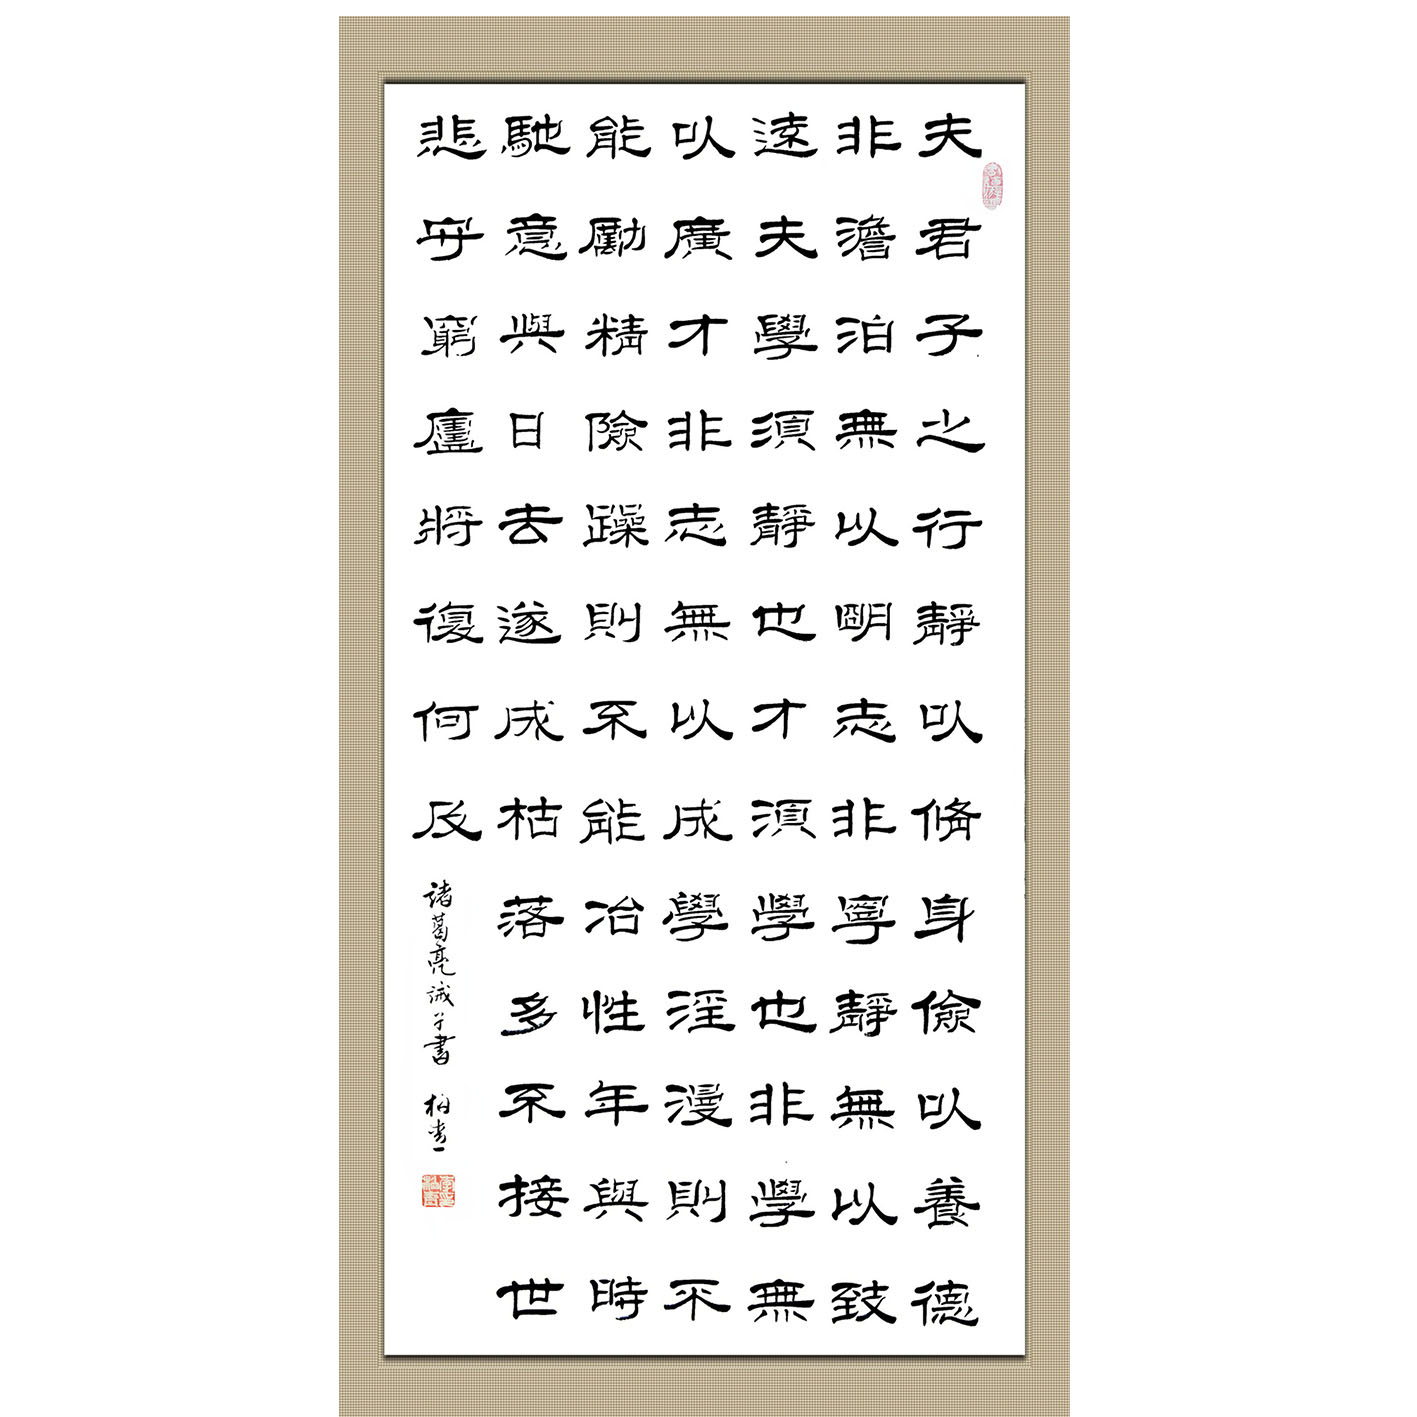 夫君子之行靜以脩身儉以養德
非澹泊無以明志非寧靜無以致
遠夫學須靜也才須學也非學無
以廣才非志無以成學淫漫則不
能勵精險躁則不能冶性年與時
馳意與日去遂成枯落多不接世
悲守窮廬將復何及
諸葛亮誡子書 柏